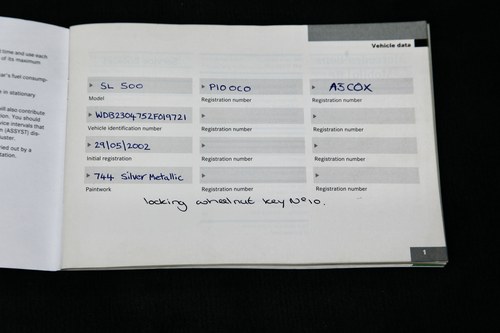 time and use each
of its maximum
ar's fuel consump-
n stationary
ill also contribute
tion. You should
vice intervals that
m (ASSYST) dis-
uster.
ried out by a
tation.
Vehicle data
SL 500
P10 OCO
A3 COX
Model
Registration number
Registration number
WDB2304752F019721
Vehicle identification number
Registration number
Registration number
29/05/2002
Initial registration
Registration number
Registration number
744 Silver Metallic
Paintwork
Registration number
Registration number
locking wheelnut key Nº10.
1